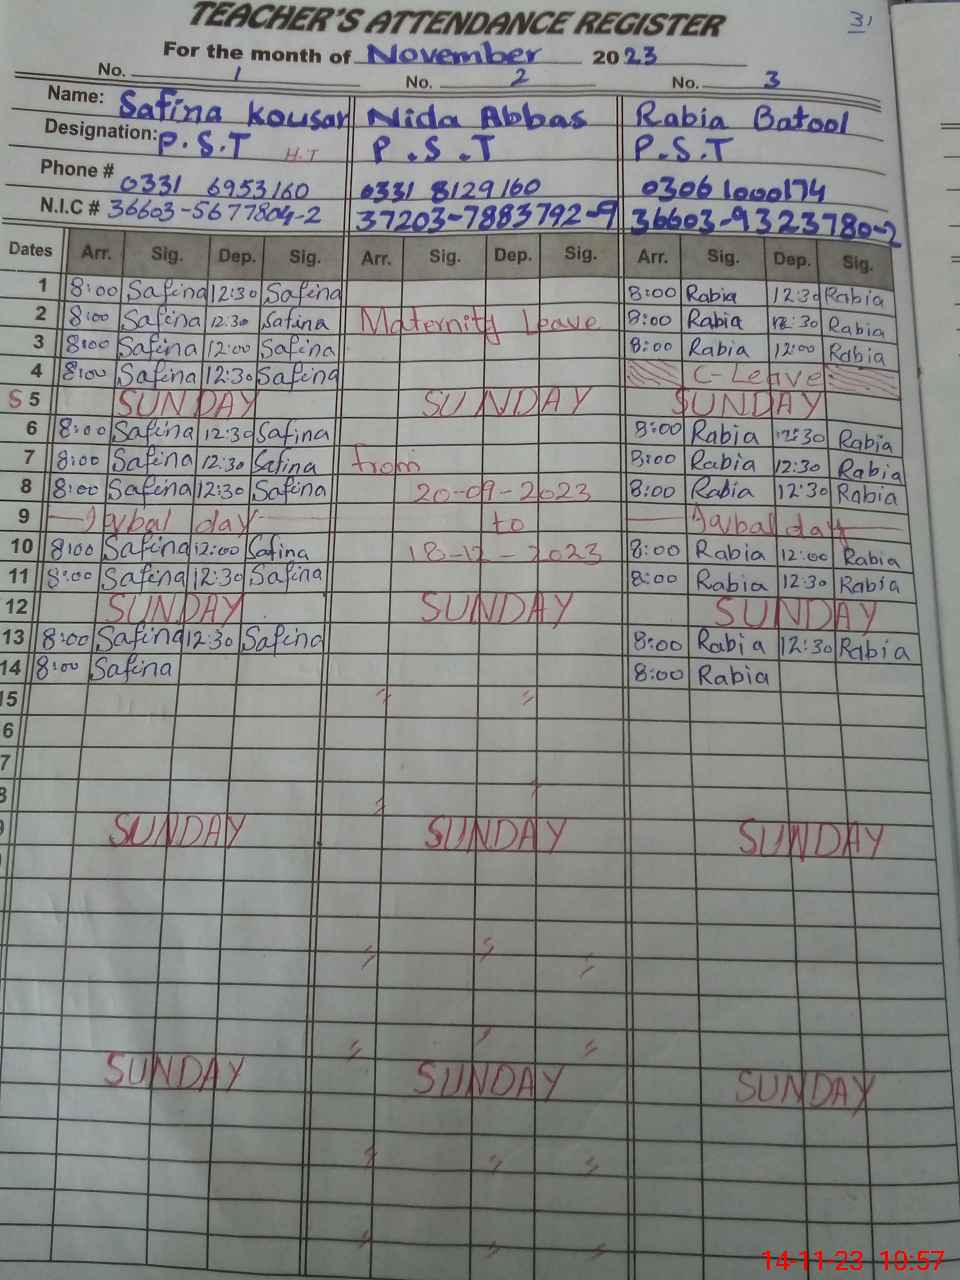 31
TEACHER'S ATTENDANCE REGISTER
For the month of November 2023
No. 1 No. 2 No. 3
Name: Safina Kousar Nida Abbas Rabia Batool
Designation: P.S.T H.T P.S.T P.S.T
Phone # 0331 6953160 0331 8129160 03061000174
N.I.C # 36603-5677804-2 37203-7883792-9 36603-9323780-2
Dates Arr. Sig. Dep. Sig. Arr. Sig. Dep. Sig. Arr. Sig. Dep. Sig.
1 8:00 Safina 12:30 Safina 8:00 Rabia 12:30 Rabia
2 8:00 Safina 12:30 Safina Maternity Leave 8:00 Rabia 12:30 Rabia
3 8:00 Safina 12:00 Safina 8:00 Rabia 12:00 Rabia
4 8:00 Safina 12:30 Safina C-Leave
S 5 SUNDAY SUNDAY SUNDAY
6 8:00 Safina 12:30 Safina 8:00 Rabia 12:30 Rabia
7 8:00 Safina 12:30 Safina from 8:00 Rabia 12:30 Rabia
8 8:00 Safina 12:30 Safina 20-09-2023 8:00 Rabia 12:30 Rabia
9 Iqbal day to Iqbal day
10 8:00 Safina 12:00 Safina 18-12-2023 8:00 Rabia 12:00 Rabia
11 8:00 Safina 12:30 Safina 8:00 Rabia 12:30 Rabia
12 SUNDAY SUNDAY SUNDAY
13 8:00 Safina 12:30 Safina 8:00 Rabia 12:30 Rabia
14 8:00 Safina 8:00 Rabia
15 " "
6
7
8 " "
SUNDAY SUNDAY SUNDAY
" " "
" " "
SUNDAY SUNDAY SUNDAY
" " "
" " "
14-11-23 10:57